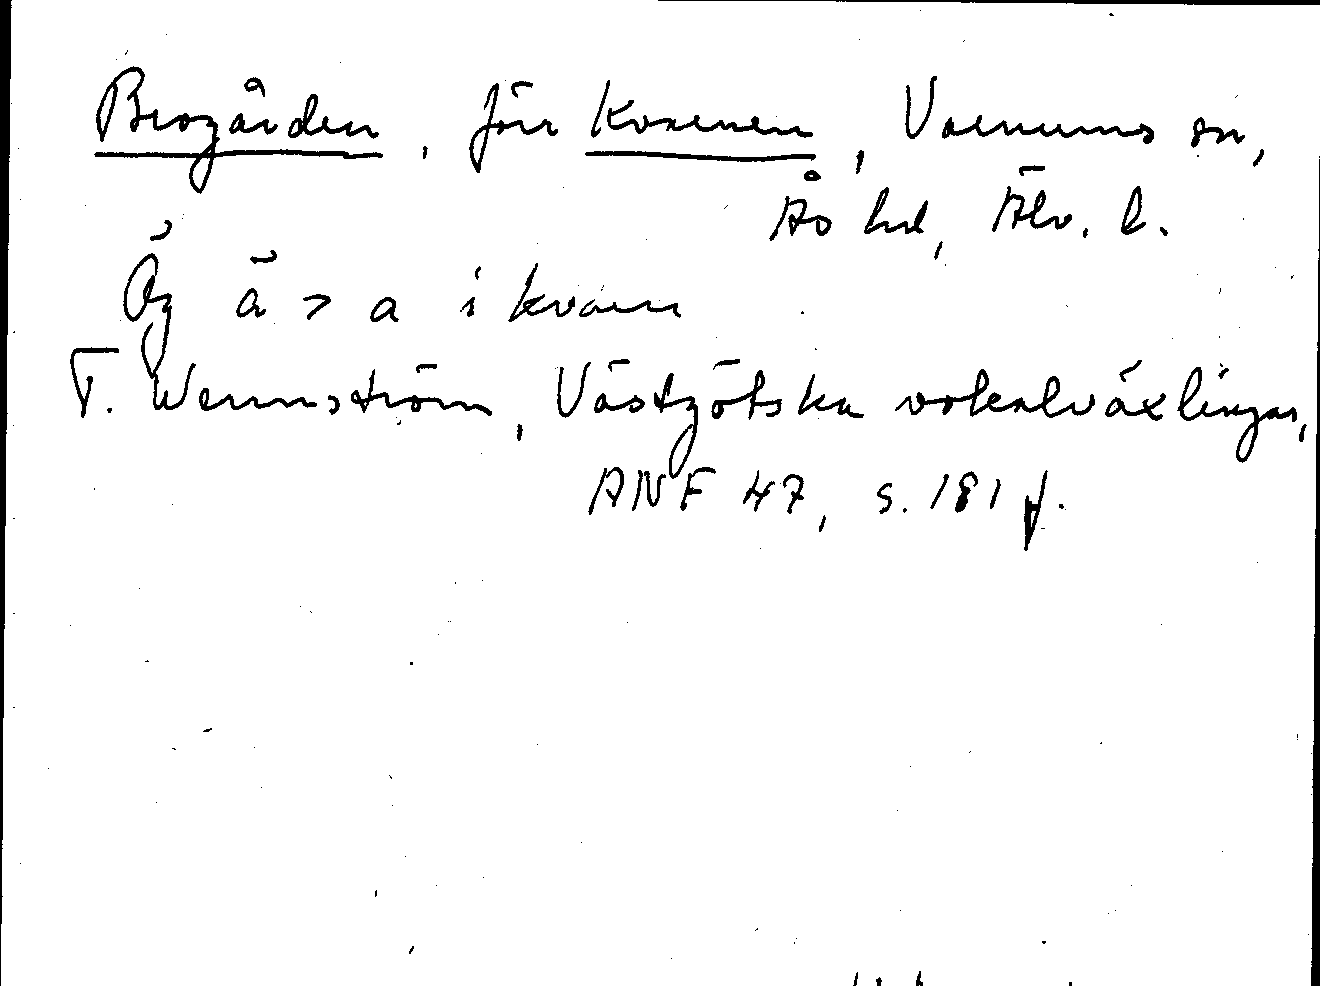 Brogården, förr Kvarnen, Varnums sn,
Ås hd, Älv. l.
Äg ä > a i kvarn
T. Wennström, Västgötska vokalväxlingar,
ANF 47, s. 181 f.